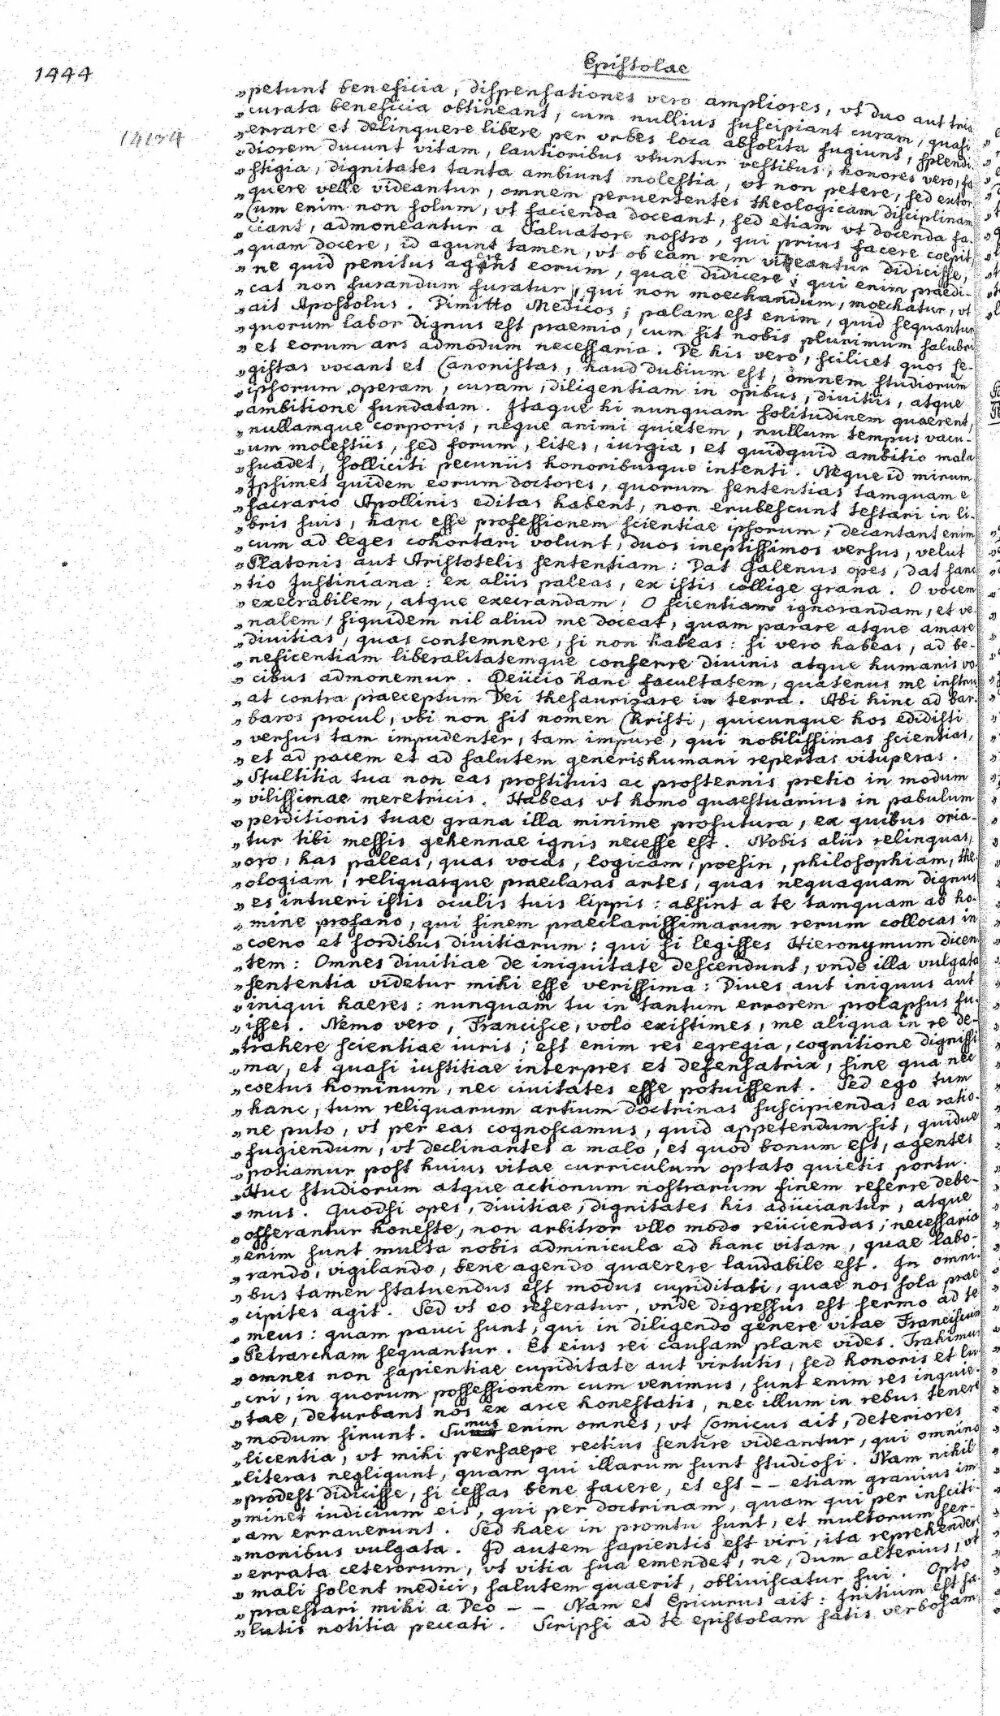 Epistolae
1444
14134
„petunt beneficia, dispensationes vero ampliores, vt duo aut tria
„curata beneficia obtineant, cum nullius suscipiant curam, quasi
„errare et delinquere libere per vrbes loca absolita fugiunt, splendi-
„diorem ducunt vitam, lautioribus vtuntur vestibus, honores vero, fa-
„stigia, dignitates tanta ambiunt molestia, vt non petere, sed extor-
„quere velle videantur, omnem peruertentes theologicam disciplinam
„Cum enim non solum, vt facienda doceant, sed etiam vt docenda fa-
„ciant, admoneantur a Saluatore nostro, qui prius facere coepit,
„quam docere, id agunt tamen, vt ob eam rem videantur didicisse,
„ne quid penitus agerent eorum, quae didicere, qui enim praedi-
„cat non furandum furatur, qui non moechandum, moechatur, vt
„ait Apostolus. Dimitto Medicos; palam est enim, quid sequantur
„quorum labor dignus est praemio, cum sit nobis plurimum salubris
„et eorum ars admodum necessaria. De his vero, scilicet quos le-
„gistas vocant et Canonistas, haud dubium est, omnem studiorum
„ipsorum operam, curam, diligentiam in opibus, divitiis, atque
„ambitione fundatam. Itaque hi nunquam solitudinem quaerent,
„nullamque corporis, neque animi quietem, nullum tempus vacu-
„um molestiis, sed forum, lites, iurgia, et quidquid ambitio mala
„suadet, solliciti pecuniis honoribusque intenti. Neque id mirum
„Ipsimet quidem eorum doctores, quorum sententias tamquam e
„sacrario Apollinis editas habent, non erubescunt testari in li-
„bris suis, hanc esse professionem scientiae ipsorum; decantant enim
„cum ad leges cohortari volunt, duos ineptissimos versus, velut
„Platonis aut Aristotelis sententiam: Dat Galenus opes, dat sanc
„tio Justiniana: ex aliis paleas, ex istis collige grana. O vocem
„execrabilem, atque execrandam! O scientiam ignorandam, et ve-
„nalem, siquidem nil aliud me doceat, quam parare atque amare
„divitias, quas contemnere, si non habeas: si vero habeas, ad be-
„neficentiam liberalitatemque conferre divinis atque humanis vo
„cibus admonemur. Deiicio hanc facultatem, quatenus me instru
„at contra praeceptum Dei thesaurizare in terra. Abi hinc ad bar-
„baros procul, vbi non sit nomen Christi, quicunque hos edidisti
„versus tam imprudenter, tam impure, qui nobilissimas scientias,
„et ad pacem et ad salutem generis humani repertas vituperas.
„Stultitia tua non eas prostituis ac prosternis pretio in modum
„vilissimae meretricis. Habeas vt homo quaestuarius in pabulum
„perditionis tuae grana illa minime profutura, ex quibus oria-
„tur tibi messis gehennae ignis necesse est. Nobis aliis relinquas,
„oro, has paleas, quas vocas, logicam, poesin, philosophiam, the
„ologiam, reliquasque praeclaras artes, quas nequaquam dignus
„es intueri istis oculis tuis lippis: absint a te tamquam ab ho-
„mine profano, qui finem praeclarissimarum rerum collocas in
„coeno et sordibus divitiarum: qui si legisses Hieronymum dicen
„tem: Omnes divitiae de iniquitate descendunt, vnde illa vulgata
„sententia videtur mihi esse verissima: Dives aut iniquus aut
„iniqui haeres: nunquam tu in tantum errorem prolapsus fu-
„isses. Nemo vero, Francisce, volo existimes, me aliqua in re de-
„trahere scientiae iuris; est enim res egregia, cognitione dignissi
„ma, et quasi iustitiae interpres et defensatrix, sine qua nec
„coetus hominum, nec civitates esse potuissent. Sed ego tum
„hanc, tum reliquarum artium doctrinas suscipiendas ea ratio-
„ne puto, vt per eas cognoscamus, quid appetendum sit, quidue
„fugiendum, vt declinantes a malo, et quod bonum est, agentes
„potiamur post huius vitae curriculum optato quietis portu.
„Huc studiorum atque actionum nostrarum finem referre debe-
„mus. Quodsi opes, divitiae, dignitates his adiiciantur, atque
„offerantur honeste, non arbitror vllo modo reiiciendas; necessaria
„enim sunt multa nobis adminicula ad hanc vitam, quae labo-
„rando, vigilando, bene agendo quaerere laudabile est. In omni-
„bus tamen statuendus est modus cupiditati, quae nos sola prae
„cipites agit. Sed vt eo referatur, vnde digressus est sermo ad te
„meus: quam pauci sunt, qui in diligendo genere vitae Franciscum
„Petrarcham sequantur. Et eius rei causam plane vides. Trahimur
„omnes non sapientiae cupiditate aut virtutis, sed honoris et lu-
„cri, in quorum possessionem cum venimus, sunt enim res inquie-
„tae, deturbant nos ex arce honestatis, nec illum in rebus tenere
„modum sinunt. Sumus enim omnes, vt Comicus ait, deteriores
„licentia, vt mihi persaepe rectius sentire videantur, qui omnino
„literas negligunt, quam qui illarum sunt studiosi. Nam nihil
„prodest didicisse, si cessas bene facere, et est -- etiam gravius im
„minet iudicium eis, qui per doctrinam, quam qui per insciti-
„am errauerunt. Sed haec in promtu sunt, et multorum ser-
„monibus vulgata. Id autem sapientis est viri, ita reprehendere
„errata ceterorum, vt vitia sua emendet, ne, dum alterius, vt
„mali solent medici, salutem quaerit, obliuiscatur sui. Opto
„praestari mihi a Deo -- Nam et Epicurus ait: Initium est sa-
„lutis notitia peccati. Scripsi ad te epistolam satis verbosam